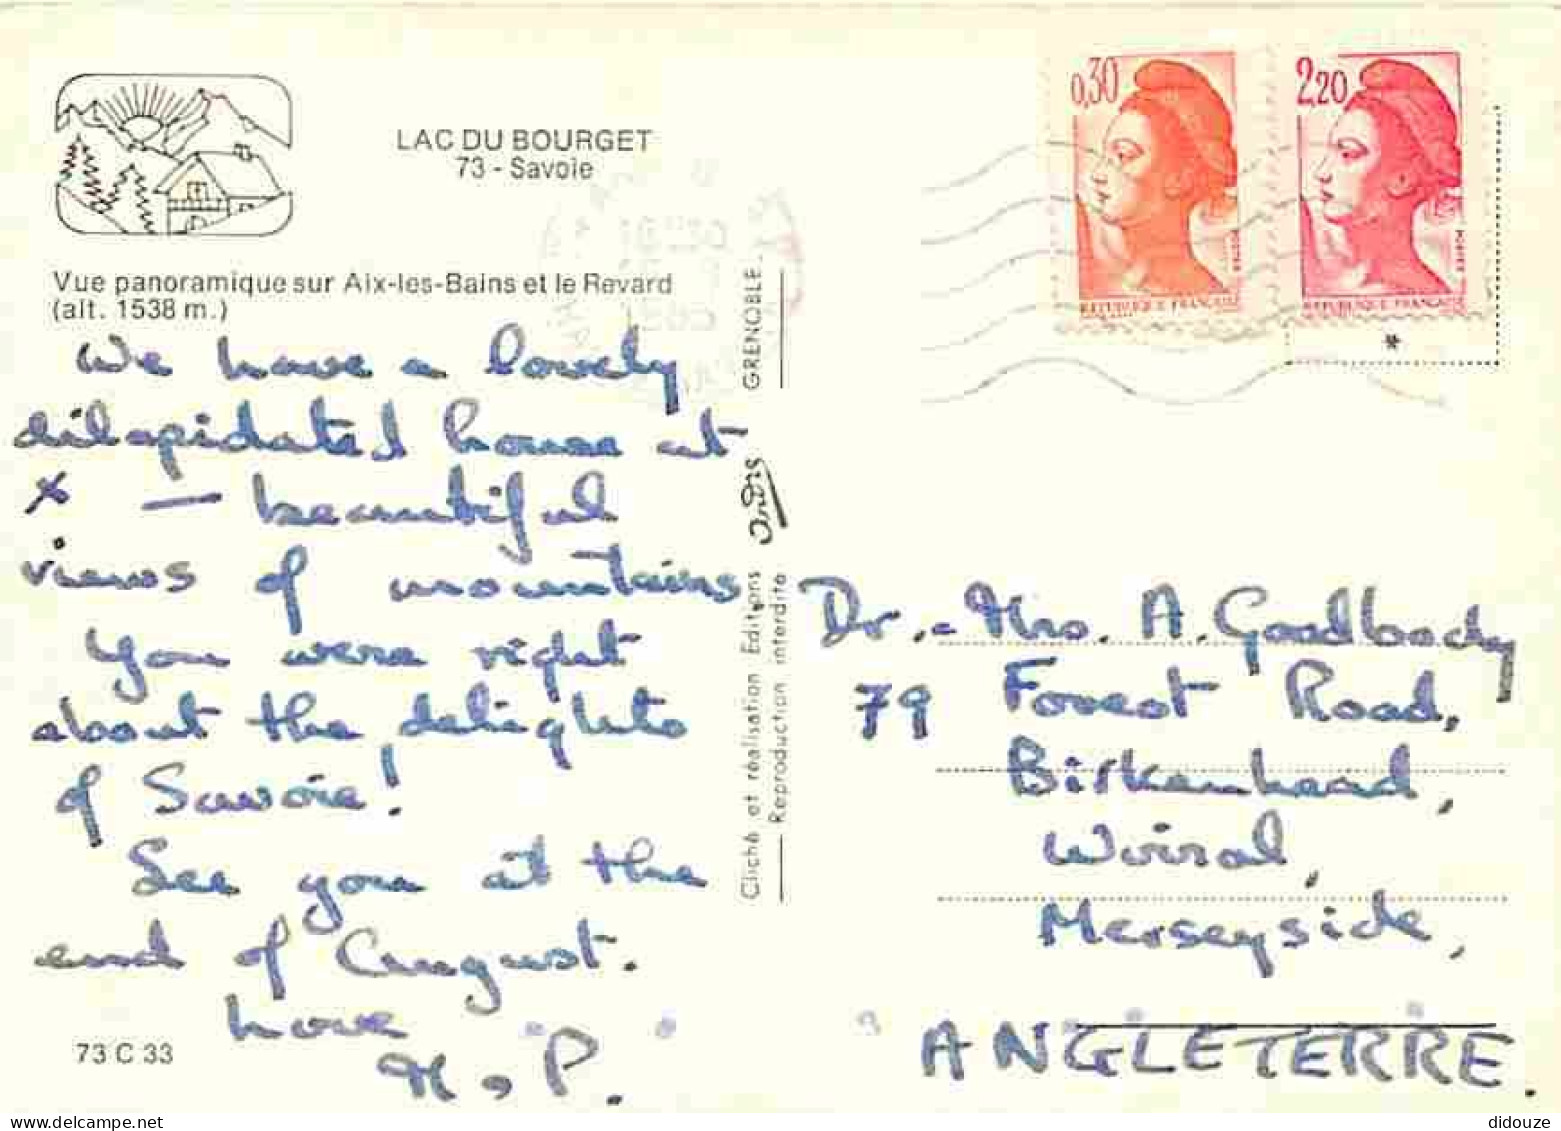 LAC DU BOURGET
73 - Savoie
Vue panoramique sur Aix-les-Bains et le Revard
(alt. 1538 m.)
We have a lovely
dilapidated house at
x — beautiful
views of mountains
You were right
about the delights
of Savoie!
See you at the
end of August.
Love
M, P.
73 C 33
Cliché et réalisation Editions
GRENOBLE
Reproduction interdite
0,30
REPUBLIQUE FRANÇAISE
2,20
REPUBLIQUE FRANÇAISE
*
Dr. - Mrs. A. Goodbody
79 Forest Road,
Birkenhead,
Wirral,
Merseyside,
ANGLETERRE.
didouze